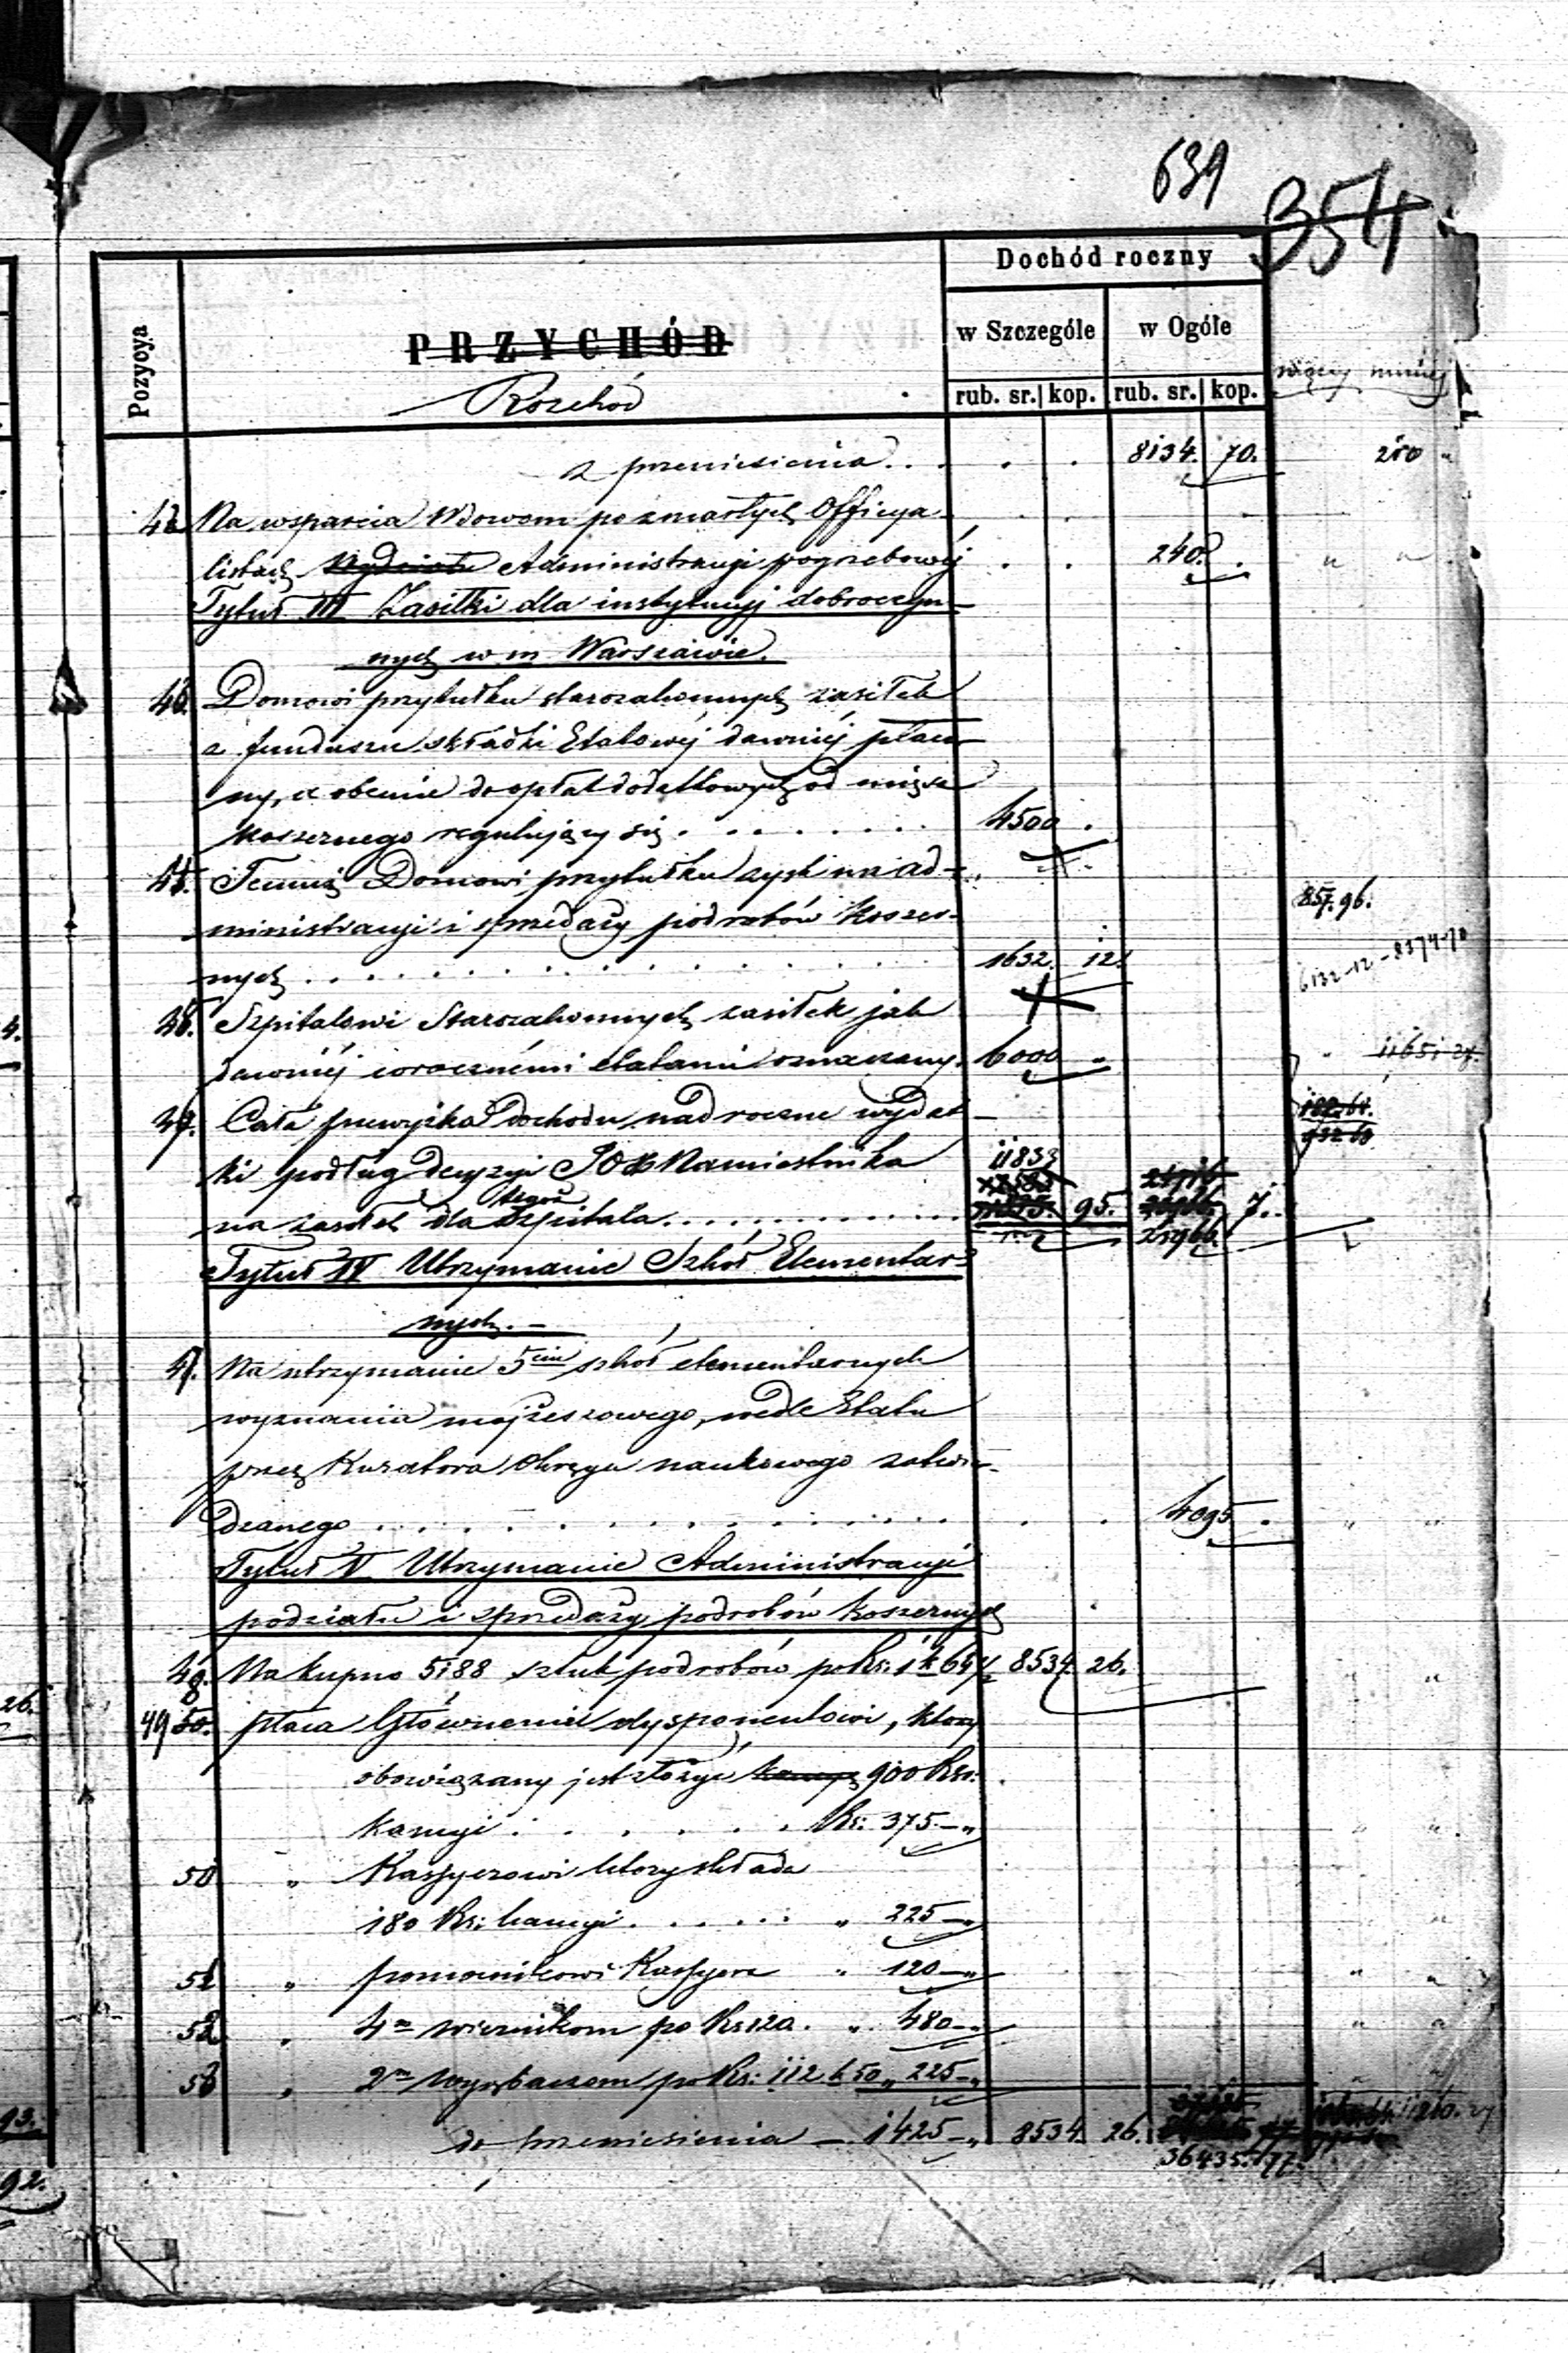 639
354
Dochód roczny
Pozycya
PRZYCHÓD
Rozchód
w Szczególe
w Ogóle
więcej mniej
rub. sr. kop. rub. sr. kop.
z przeniesienia . . . . . 8134. 70.
Na wsparcia Wdowom po zmarłych Officya-
listach Administracyi pogrzebowéj . . 240. .
Tytuł III Zasiłki dla instytucyj dobroczyn-
nych w m Warszawie.
Domowi przytułku starozakonnych zasiłek
z funduszu składki Etatowéj dawniéj płaco-
ny, a obecnie do opłat dodatkowych od mięsa
koszernego regulujący się . . . . . . . 4500 .
Temuż Domowi przytułku zysk na ad-
ministracyi i sprzedaży podrobów koszer-
857. 96.
nych . . . . . . . . . . . . . . 1632. 12.
6132-12-8374-70
Szpitalowi Starozakonnych zasiłek jak
dawniéj corocznémi etatami oznaczony. 6000 „
Cała przewyżka dochodu nad roczne wydat-
ki podług decyzyi JO Namiestnika 11833
na zasiłek dla tegoż Szpitala . . . . . . . . . . . 95. 23966 7.
Tytuł IV Utrzymanie Szkół Elementar-
nych.-
Na utrzymanie 5ciu szkół elementarnych
wyznania mojżeszowego, wedle Etatu
przez Kuratora Okręgu naukowego zatwier-
dzanego . . . . . . . . . . . . . . . . 4095 .
Tytuł V Utrzymanie Administracyi
podziału i sprzedaży podrobów koszernych
Na kupno 5188 sztuk podrobów po Rs. 1 k 64½ 8534. 26.
49 płaca Głównemu dysponentowi, który
obowiązany jest złożyć 900 Rsr.
kaucyi . . . . . . . Rs. 375.-„
„ Kassyerowi który składa
180 Rs: kaucyi . . . . . „ 225-„
„ pomocnikowi Kassyera „ 120-„
52 „ 4m wiernikom po Rs 120. „ 480-„
„ 2m wyrębaczom po Rs: 112 k 50 „ 225-„
do przeniesienia - 1425-„ 8534. 26.
36435. 77.